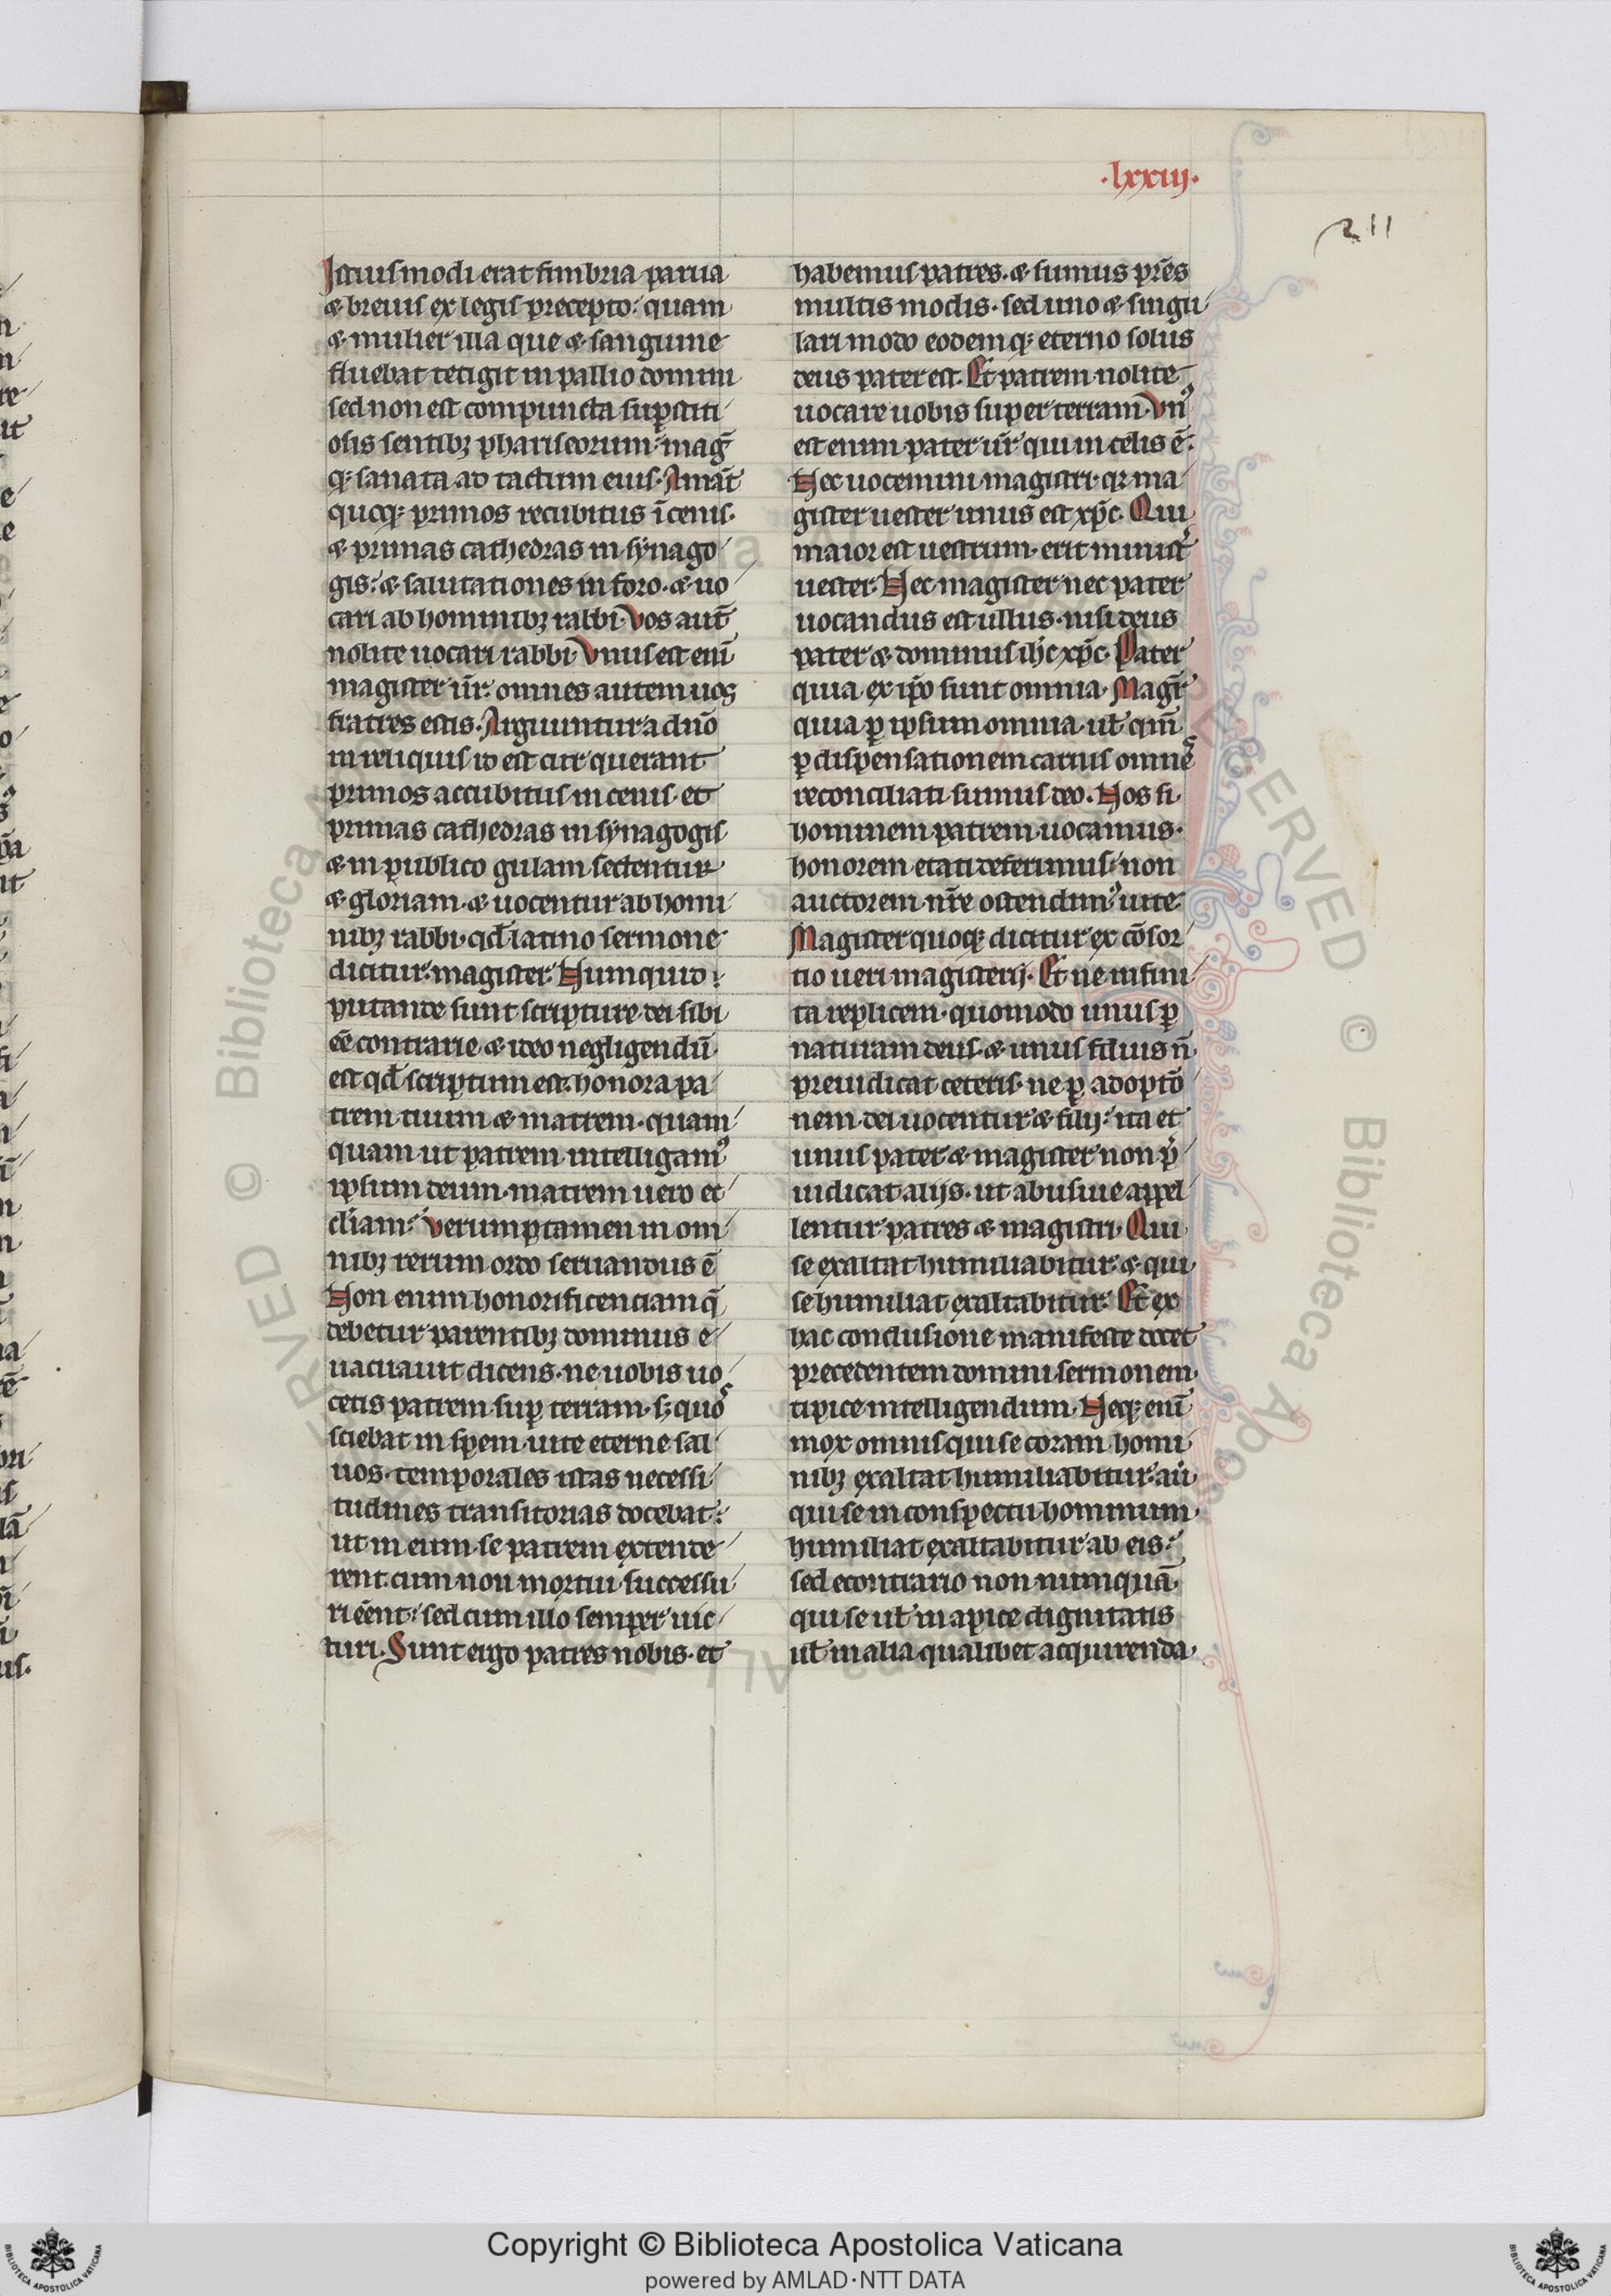 ·lxxiij·
211
Istiusmodi erat fimbria parua
& breuis ex legis precepto: quam
& mulier illa que & sanguine
fluebat tetigit in pallio domini
sed non est compuncta sup̱stiti
osis sentibꝫ phariseorum: mag̅
qꝫ sanata ad tactum eius. Amāt
quoqꝫ primos recubitus ī cenis.
& primas cathedras in synago
gis: & salutationes in foro. & uo
cari ab hominibꝫ rabbi. Vos aut̅
nolite uocari rabbi. Vnus est eni̅
magister ur̅: omnes autem uos
fratres estis. Arguuntur a dn̅o
in reliquis id est cur querant
primos accubitus in cenis et
primas cathedras in synagogis
& in publico gulam sectentur
& gloriam. & uocentur ab homi
nibꝫ rabbi. qd̅ latino sermone
dicitur magister. Numquid
putande sunt scripture dei sibi
ee̅ contrarie & ideo negligendu̅
est qd̅ scriptum est. honora pa
trem tuum & matrem. quam
quam ut patrem intelligamꝰ
ipsum deum. matrem uero ec
cl̅iam: Verumptamen in om
nibꝫ rerum ordo seruandus e̅
Non enim honorificenciam q̅
debetur parentibꝫ dominus e
uacuauit dicens. ne uobis uo
cetis patrem sup̱ terram. sꝫ quos
sciebat in spem uite eterne sal
uos. temporales istas necessi
tudines transitorias docebat:
ut in eum se patrem extende
rent. cum non mortui successu
ri ee̅nt: sed cum illo semper uic
turi. Sunt ergo patres nobis. et
habemus patres. & sumus pr̅es
multis modis. sed uno & singu
lari modo eodemqꝫ eterno solus
deus pater est. Et patrem nolite
uocare uobis super terram. Vnꝰ
est enim pater ur̅ qui in celis e̅.
Nec uocemini magistri. qꝛ ma
gister uester unus est xp̅c. Qui
maior est uestrum. erit minist̅
uester. Nec magister nec pater
uocandus est ullus. nisi deus
pater & dominus ih̅c xp̅c. Pater
quia ex ip̅o sunt omnia. Magr̅
quia ꝑ ipsum omnia. ul̅ qm̅
ꝑ dispensationem carnis omnes
reconciliati sumus deo. Nos si
hominem patrem uocamus.
honorem etati deferimus: non
auctorem nr̅e ostendimꝰ uite
Magister quoqꝫ dicitur ex co̅sor
tio ueri magisterij. Et ne infini
ta replicem. quomodo unus ꝑ
naturam deus. & unus filius n̅
preiudicat ceteris. ne ꝑ adopto̅
nem dei uocentur & filij: ita et
unus pater & magister non p̅
iudicat alijs. ut abusiue appel
lentur patres & magistri. Qui
se exaltat humiliabitur. & qui
se humiliat exaltabitur. Et ex
hac conclusione manifeste docet
precedentem domini sermonem
tipice intelligendum. Neqꝫ eni̅
mox omnis qui se coram homi
nibꝫ exaltat humiliabitur. aut
qui se in conspectu hominum
humiliat exaltabitur ab eis:
sed econtrario non numqua̅
qui se ul̅ in apice dignitatis
ul̅ in alia qualibet acquirenda
Copyright © Biblioteca Apostolica Vaticana
powered by AMLAD·NTT DATA